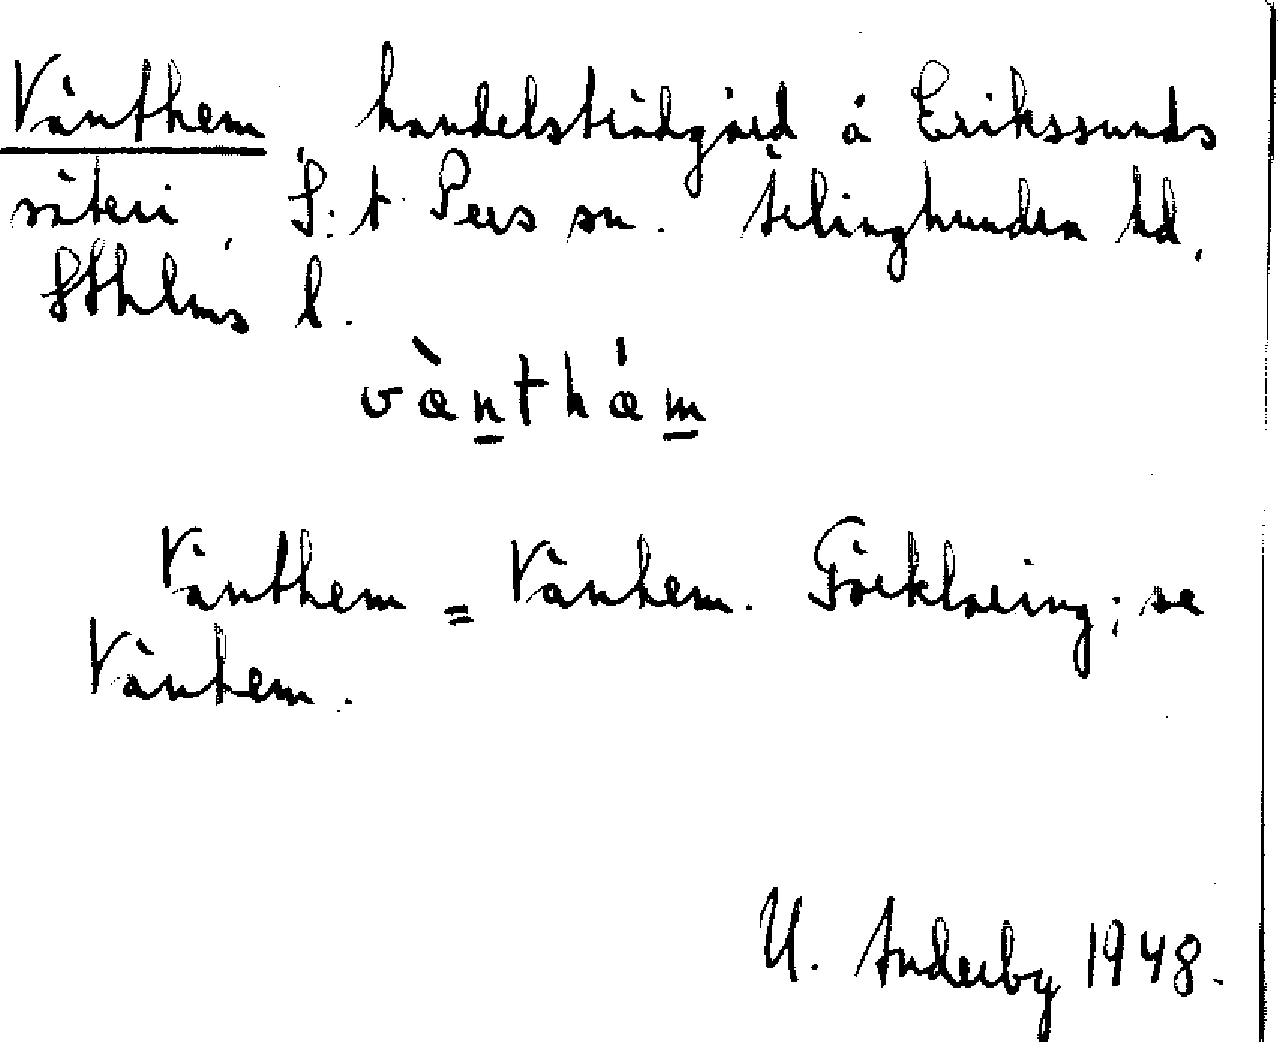 Vänthem handelsträdgård å Erikssunds
säteri, S:t Pers sn. Ärlinghundra hd,
Sthlms l.
vὰnthám
Vänthem = Vänhem. Förklaring; se
Vänhem.
U. Anderby 1948.